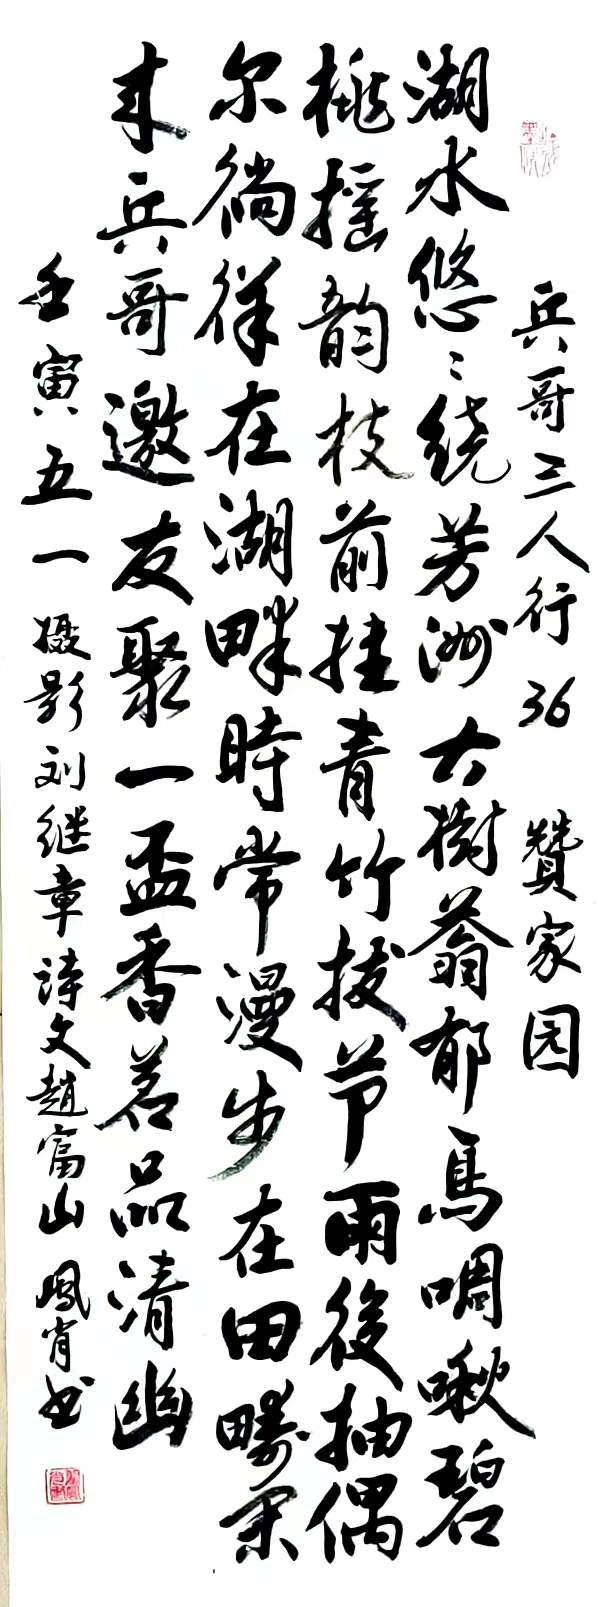 兵哥三人行36 贊家园
湖水悠〻绕芳洲大樹蓊郁鳥啁啾碧
桃摇韵枝前挂青竹拔节雨後抽偶
尔徜徉在湖畔時常漫步在田疇闲
来兵哥邀友聚一盃香茗品清幽
壬寅五一 摄影刘继章诗文趙富山 鳳肖书